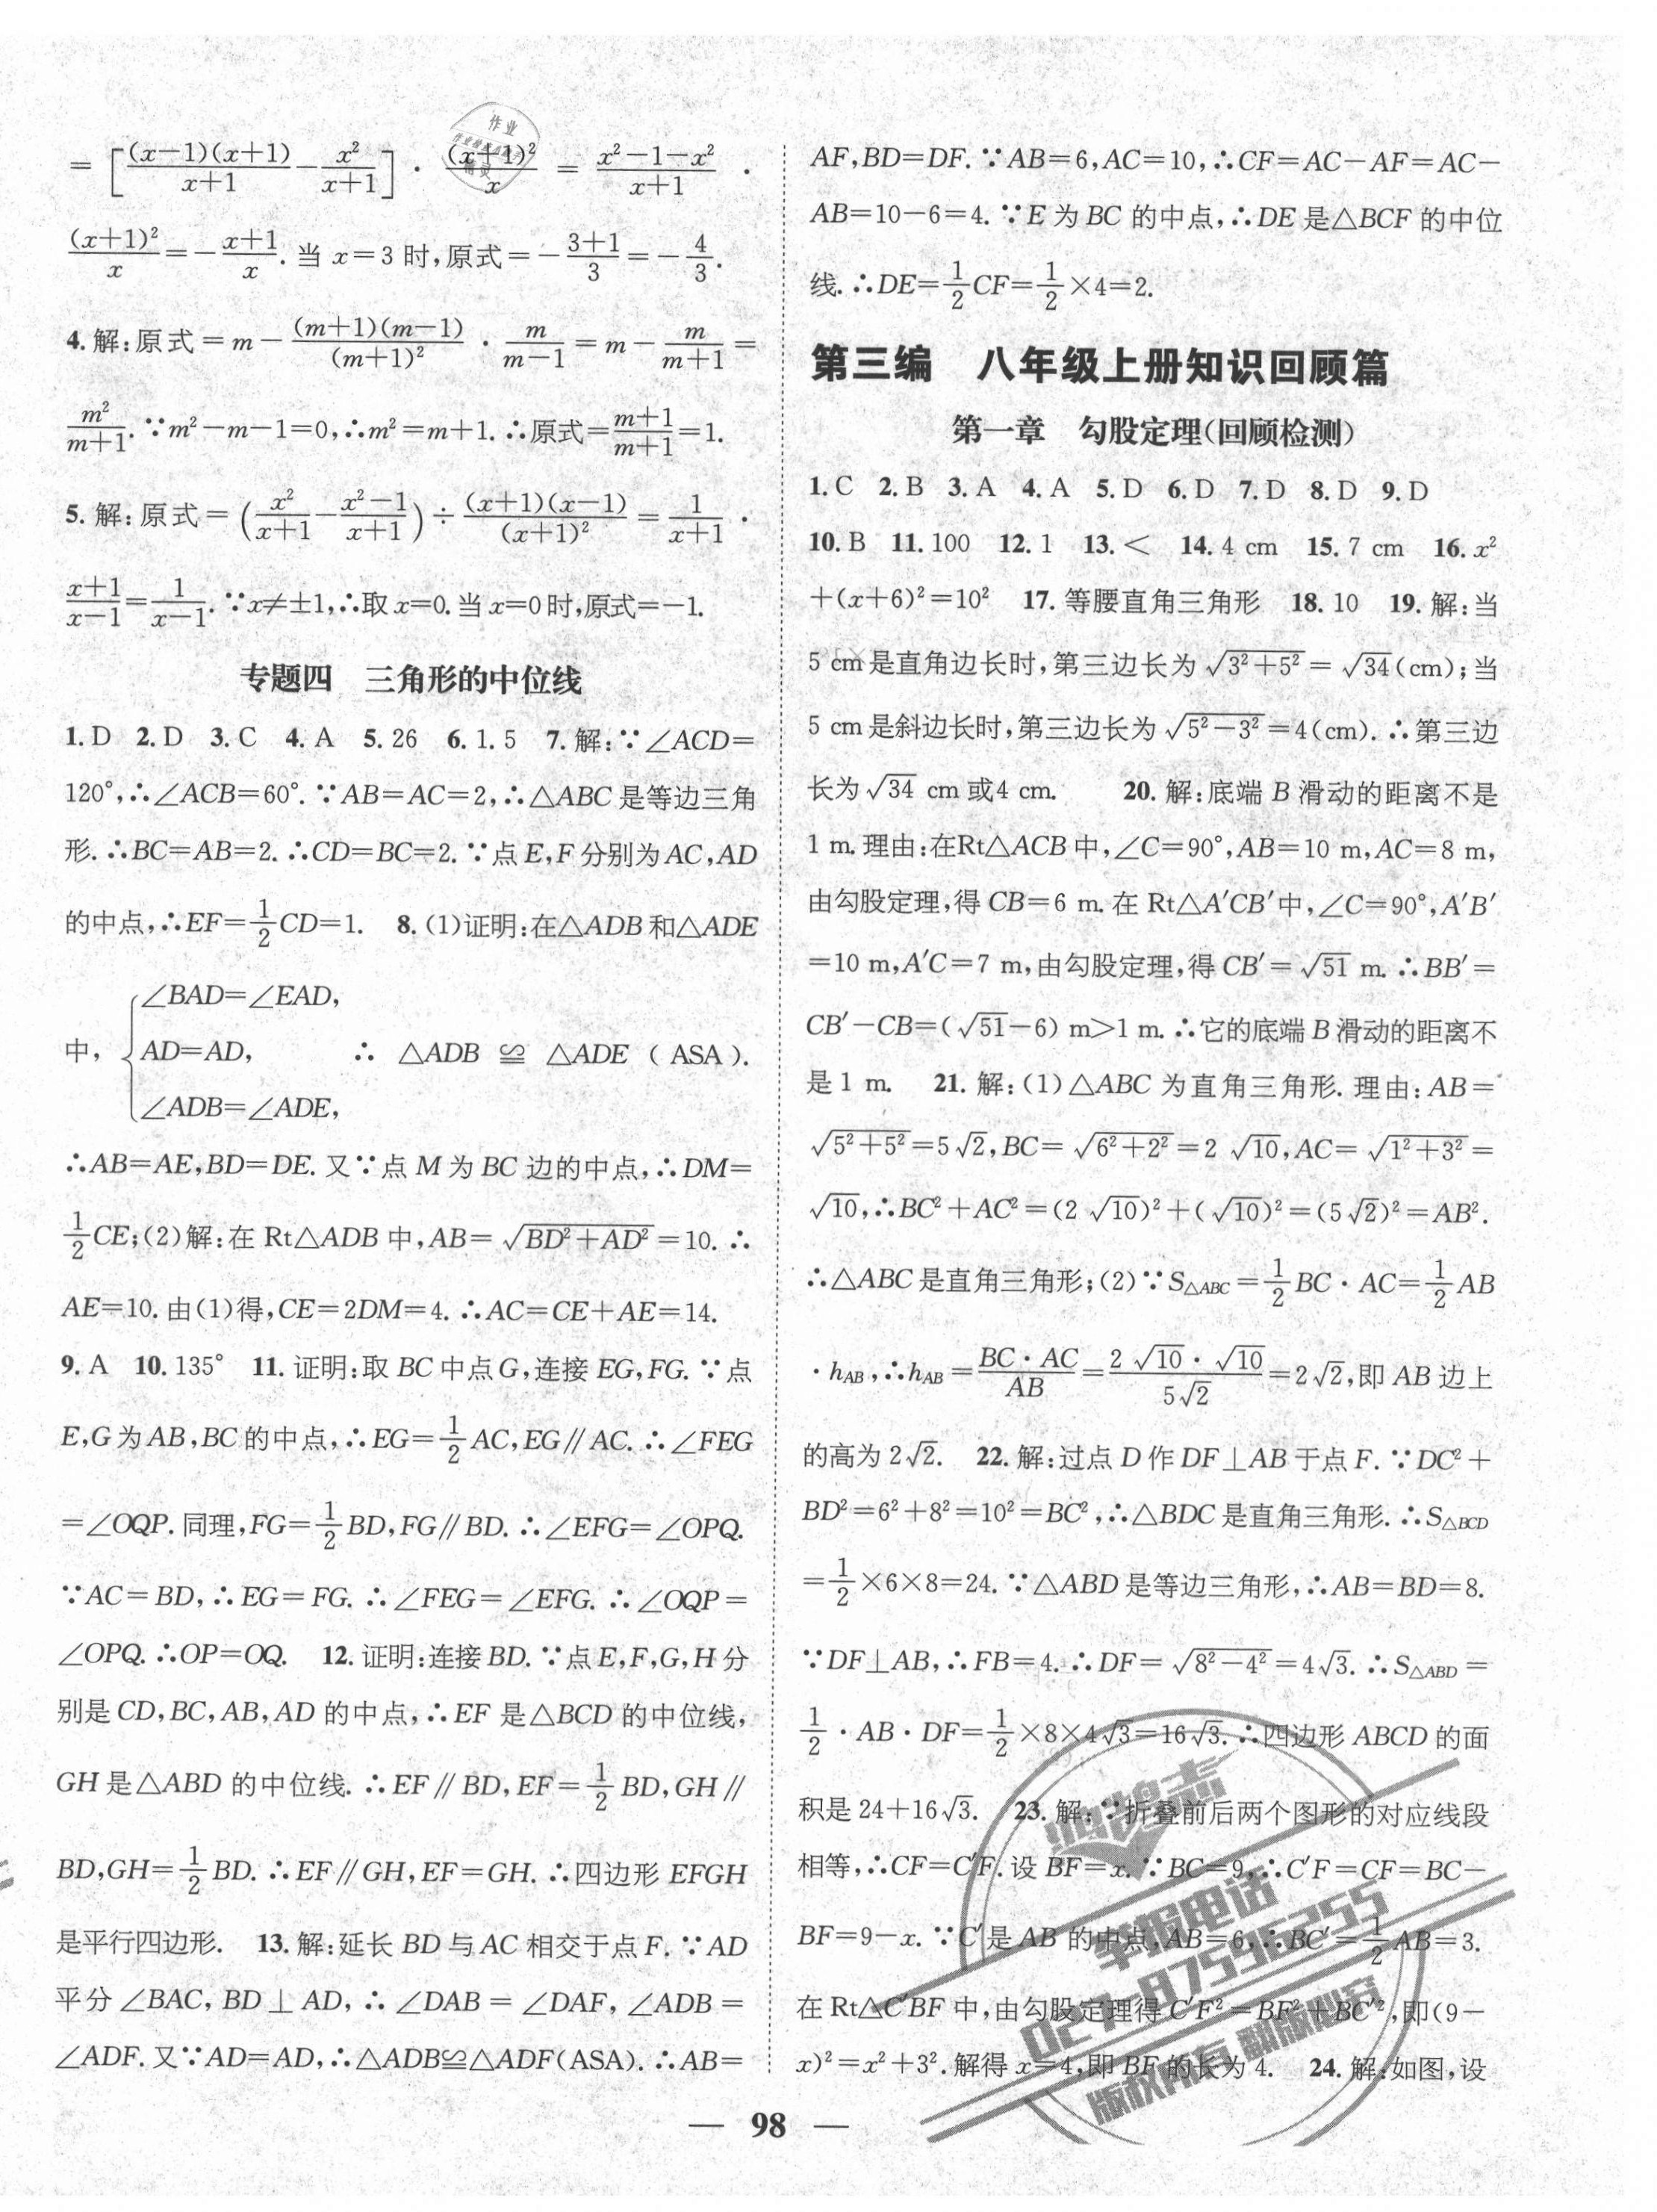 =[(x-1)(x+1)/(x+1) - x²/(x+1)] · (x+1)²/x = (x²-1-x²)/(x+1) ·
(x+1)²/x = -(x+1)/x. 当 x=3 时,原式=-(3+1)/3=-4/3.
4. 解:原式=m-(m+1)(m-1)/(m+1)² · m/(m-1)=m-m/(m+1)=
m²/(m+1). ∵m²-m-1=0,∴m²=m+1. ∴原式=(m+1)/(m+1)=1.
5. 解:原式=(x²/(x+1)-(x²-1)/(x+1))÷(x+1)(x-1)/(x+1)²=1/(x+1) ·
(x+1)/(x-1)=1/(x-1). ∵x≠±1,∴取x=0. 当x=0时,原式=-1.
专题四 三角形的中位线
1. D 2. D 3. C 4. A 5. 26 6. 1.5 7. 解:∵∠ACD=
120°,∴∠ACB=60°. ∵AB=AC=2,∴△ABC 是等边三角
形. ∴BC=AB=2. ∴CD=BC=2. ∵点E,F分别为AC,AD
的中点,∴EF=1/2CD=1. 8. (1)证明:在△ADB和△ADE
中, {∠BAD=∠EAD,
AD=AD, ∴ △ADB ≌ △ADE (ASA).
∠ADB=∠ADE,
∴AB=AE,BD=DE. 又∵点 M 为 BC 边的中点,∴DM=
1/2CE;(2)解:在 Rt△ADB 中,AB=√(BD²+AD²)=10. ∴
AE=10. 由(1)得,CE=2DM=4. ∴AC=CE+AE=14.
9. A 10. 135° 11. 证明:取 BC 中点G,连接 EG,FG. ∵点
E,G为AB,BC的中点,∴EG=1/2AC,EG∥AC. ∴∠FEG
=∠OQP. 同理,FG=1/2BD,FG∥BD. ∴∠EFG=∠OPQ.
∵AC=BD,∴EG=FG. ∴∠FEG=∠EFG. ∴∠OQP=
∠OPQ. ∴OP=OQ. 12. 证明:连接BD. ∵点E,F,G,H分
别是CD,BC,AB,AD 的中点,∴EF 是△BCD 的中位线,
GH是△ABD 的中位线. ∴EF∥BD,EF=1/2BD,GH∥
BD,GH=1/2BD. ∴EF∥GH,EF=GH. ∴四边形 EFGH
是平行四边形. 13. 解:延长 BD 与 AC 相交于点 F. ∵AD
平分∠BAC,BD⊥AD,∴∠DAB=∠DAF,∠ADB=
∠ADF. 又∵AD=AD,∴△ADB≌△ADF(ASA). ∴AB=
AF,BD=DF. ∵AB=6,AC=10,∴CF=AC-AF=AC-
AB=10-6=4. ∵E 为 BC 的中点,∴DE是△BCF 的中位
线. ∴DE=1/2CF=1/2×4=2.
第三编 八年级上册知识回顾篇
第一章 勾股定理(回顾检测)
1. C 2. B 3. A 4. A 5. D 6. D 7. D 8. D 9. D
10. B 11. 100 12. 1 13. < 14. 4 cm 15. 7 cm 16. x²
+(x+6)²=10² 17. 等腰直角三角形 18. 10 19. 解:当
5 cm是直角边长时,第三边长为√(3²+5²)=√34(cm);当
5 cm是斜边长时,第三边长为√(5²-3²)=4(cm). ∴第三边
长为√34 cm 或4 cm. 20. 解:底端 B 滑动的距离不是
1 m. 理由:在Rt△ACB中,∠C=90°,AB=10 m,AC=8 m,
由勾股定理,得CB=6 m. 在 Rt△A′CB′中,∠C=90°,A′B′
=10 m,A′C=7 m,由勾股定理,得CB′=√51 m. ∴BB′=
CB′-CB=(√51-6) m>1 m. ∴它的底端B滑动的距离不
是1 m. 21. 解:(1)△ABC 为直角三角形. 理由:AB=
√(5²+5²)=5√2,BC=√(6²+2²)=2√10,AC=√(1²+3²)=
√10,∴BC²+AC²=(2√10)²+(√10)²=(5√2)²=AB².
∴△ABC是直角三角形;(2)∵S△ABC=1/2BC·AC=1/2AB
·hAB,∴hAB=BC·AC/AB=2√10·√10/5√2=2√2,即AB边上
的高为2√2. 22. 解:过点 D 作 DF⊥AB 于点 F. ∵DC²+
BD²=6²+8²=10²=BC²,∴△BDC是直角三角形. ∴S△BCD
=1/2×6×8=24. ∵△ABD是等边三角形,∴AB=BD=8.
∵DF⊥AB,∴FB=4. ∴DF=√(8²-4²)=4√3. ∴S△ABD=
1/2·AB·DF=1/2×8×4√3=16√3. ∴四边形 ABCD 的面
积是24+16√3. 23. 解:∵折叠前后两个图形的对应线段
相等,∴CF=C′F. 设 BF=x. ∵BC=9,∴C′F=CF=BC-
BF=9-x. ∵C′是 AB 的中点,AB=6,∴BC′=1/2AB=3.
在 Rt△C′BF 中,由勾股定理得 C′F²=BF²+BC′²,即(9-
x)²=x²+3². 解得 x=4,即 BF 的长为4. 24. 解:如图,设
举报电话
027-87596255
版权所有 翻版必究
— 98 —